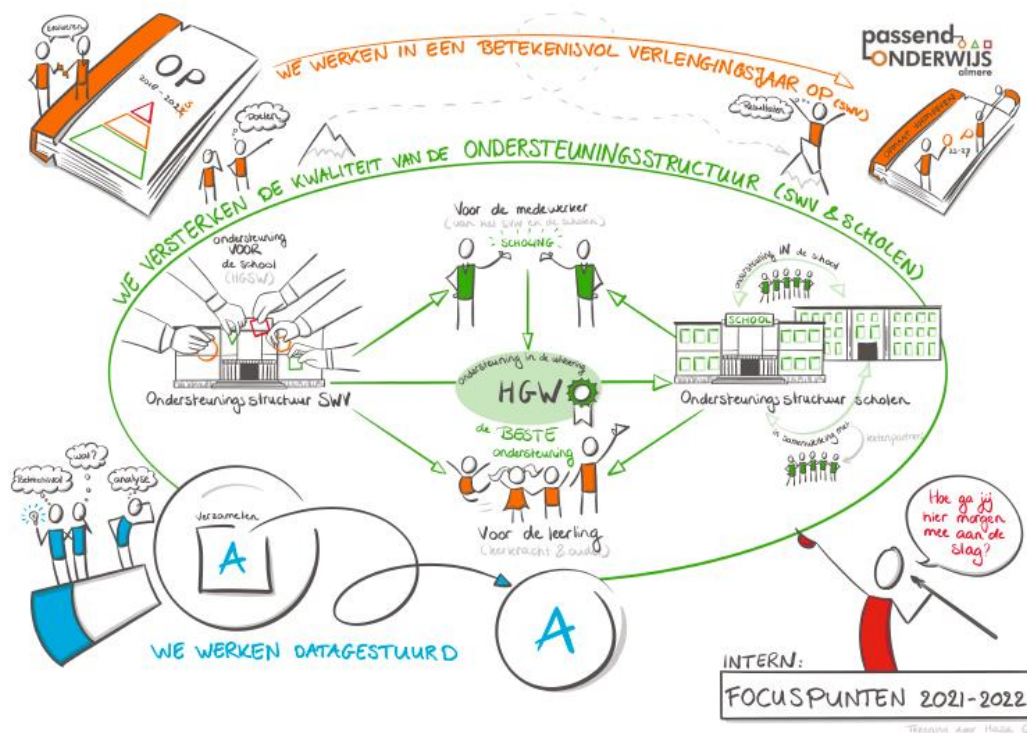 Evalueren
OP
2018 - 202
Doelen
WE WERKEN IN EEN BETEKENISVOL VERLENGINGSJAAR OP (SWV)
Resultaten
passend
ONDERWIJS
almere
OP
22-27
WE VERSTERKEN DE KWALITEIT VAN DE ONDERSTEUNINGSSTRUCTUUR (SWV & SCHOLEN)
ondersteuning
VOOR
de school
(HGSW)
Ondersteuningsstructuur SWV
Voor de medewerker
(van het SWV en de scholen)
SCHOLING
ondersteuning in de uitvoering
HGW
de BESTE
ondersteuning
Voor de leerling
(leerkracht & ouder)
ondersteuning IN de school
SCHOOL
Ondersteuningsstructuur scholen
in samenwerking met
ketenpartners
Betekenisvol
wat?
analyse
verzamelen
A
A
WE WERKEN DATAGESTUURD
Hoe ga jij
hier morgen
mee aan de
slag?
INTERN:
FOCUSPUNTEN 2021-2022